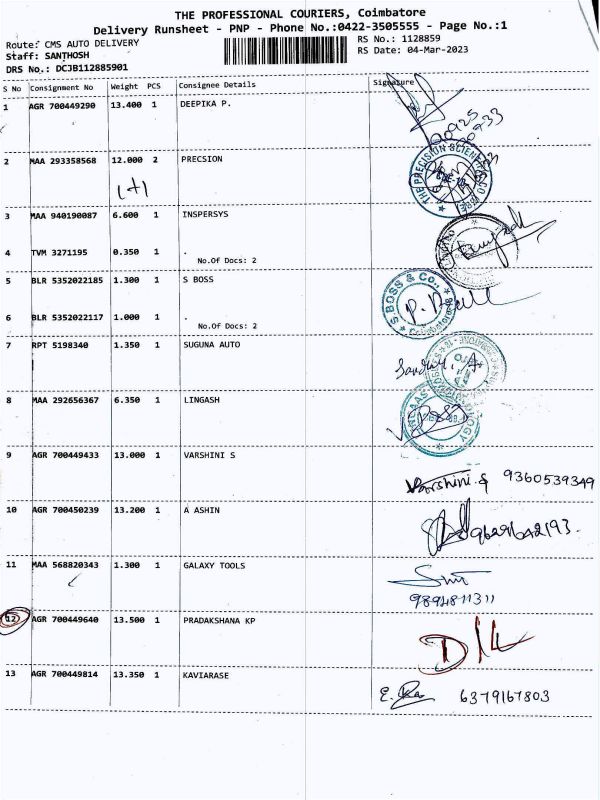 THE PROFESSIONAL COURIERS, Coimbatore
Delivery Runsheet - PNP - Phone No.:0422-3505555 - Page No.:1
Route: CMS AUTO DELIVERY
RS No.: 1128859
Staff: SANTHOSH
RS Date: 04-Mar-2023
DRS No.: DCJB112885901
S No Consignment No Weight PCS Consignee Details Signature
1 AGR 700449290 13.400 1 DEEPIKA P.
2 MAA 293358568 12.000 2 PRECSION
THE PRECISION SCIENTIFIC
1+1
3 MAA 940190087 6.600 1 INSPERSYS
4 TVM 3271195 0.350 1 .
No.Of Docs: 2
5 BLR 5352022185 1.300 1 S BOSS
S BOSS & Co.,
6 BLR 5352022117 1.000 1 .
No.Of Docs: 2
7 RPT 5198340 1.350 1 SUGUNA AUTO
8 MAA 292656367 6.350 1 LINGASH
9 AGR 700449433 13.000 1 VARSHINI S
Varshini.S 9360539349
10 AGR 700450239 13.200 1 A ASHIN
9629642193.
11 MAA 568820343 1.300 1 GALAXY TOOLS
9894811311
12 AGR 700449640 13.500 1 PRADAKSHANA KP
D/L
13 AGR 700449814 13.350 1 KAVIARASE
6379167803